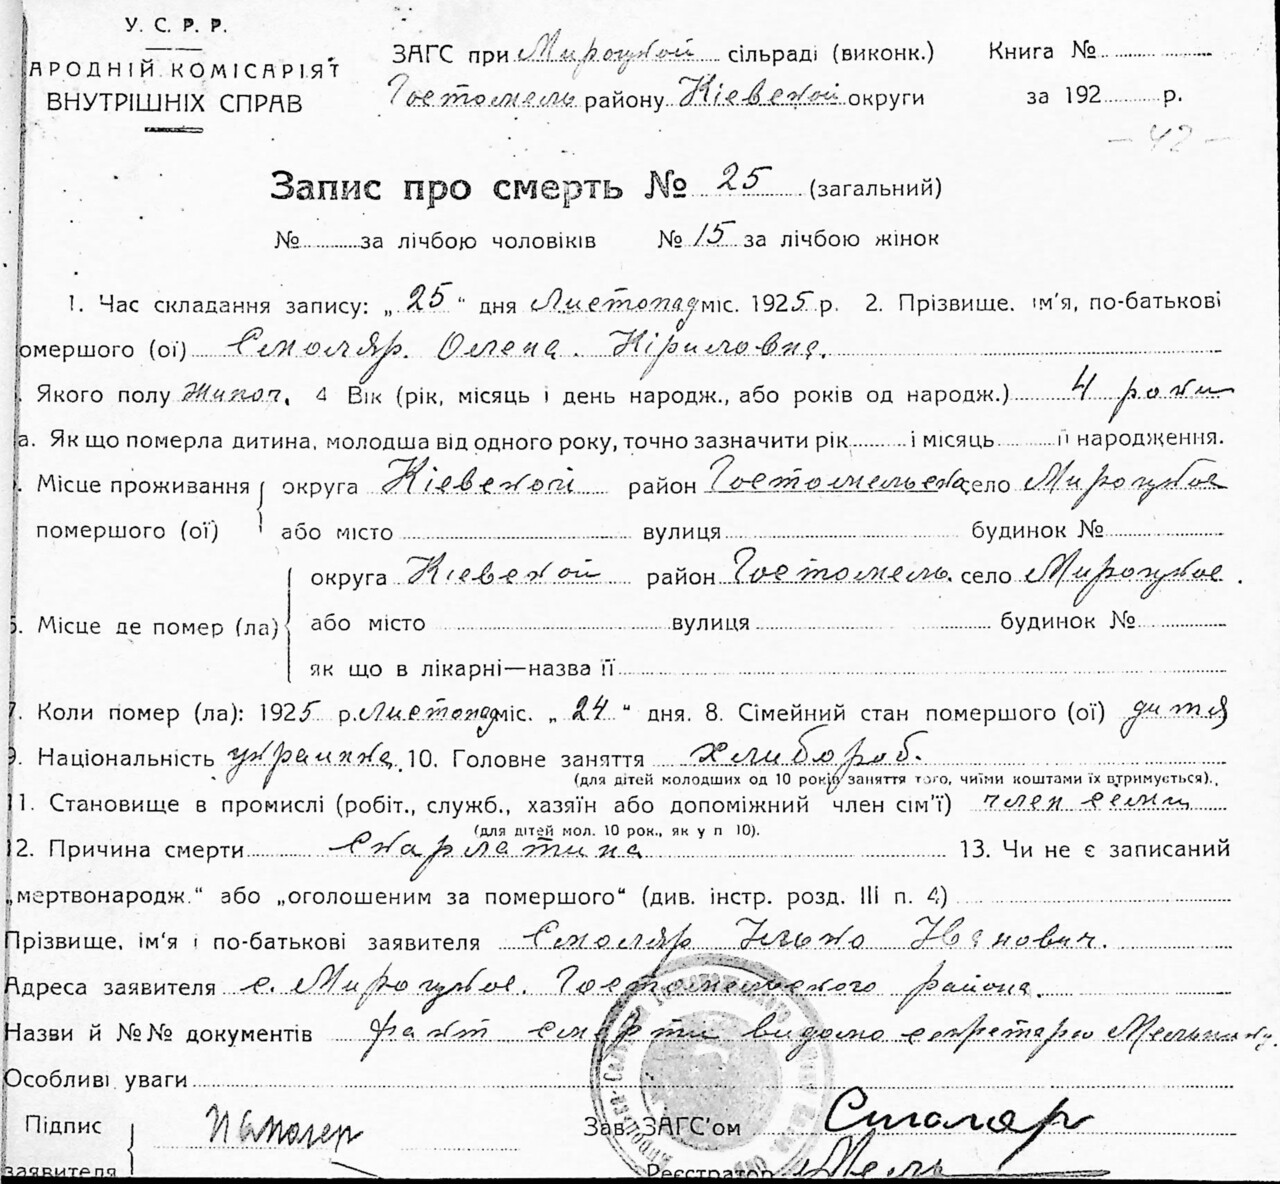 У. С. Р. Р.
АРОДНІЙ КОМІСАРІЯТ
ВНУТРІШНІХ СПРАВ
ЗАГС при Мироцкой сільраді (виконк.)
Гостомель району Кіевской округи
Книга №
за 192 р.
- 42 -
Запис про смерть № 25 (загальний)
№ за лічбою чоловіків № 15 за лічбою жінок
1. Час складання запису: „ 25 “ дня Листопад міс. 1925 р. 2. Прізвище. ім'я, по-батькові
омершого (ої) Смоляр. Олена. Кіриловна.
. Якого полу жиноч. 4 Вік (рік, місяць і день народж., або років од народж.) 4 роки
а. Як що померла дитина, молодша від одного року, точно зазначити рік і місяць її народження.
. Місце проживання округа Кіевской район Гостомельска село Мироцкое
помершого (ої) або місто вулиця будинок №
округа Кіевской район Гостомель. село Мироцкое.
6. Місце де помер (ла) або місто вулиця будинок №
як що в лікарні—назва її
7. Коли помер (ла): 1925 р. Листопад міс. „ 24 “ дня. 8. Сімейний стан помершого (ої) дитя
9. Національність украинка. 10. Головне заняття хлибороб.
(для дітей молодших од 10 років заняття того, чиїми коштами їх втримується).
11. Становище в промислі (робіт., служб., хазяїн або допоміжний член сім'ї) член семи
(для дітей мол. 10 рок., як у п 10).
12. Причина смерти Скарлатина 13. Чи не є записаний
„мертвонародж.“ або „оголошеним за помершого“ (див. інстр. розд. III п. 4)
Прізвище, ім'я і по-батькові заявителя Смоляр Илько Иванович.
Адреса заявителя с. Мироцкое. Гостомельского района.
Назви й №№ документів факт смерти видомо секретарю Мельнику.
Особливі уваги
Підпис
заявителя
Зав. ЗАГС'ом Столяр
Реєстратор Мель